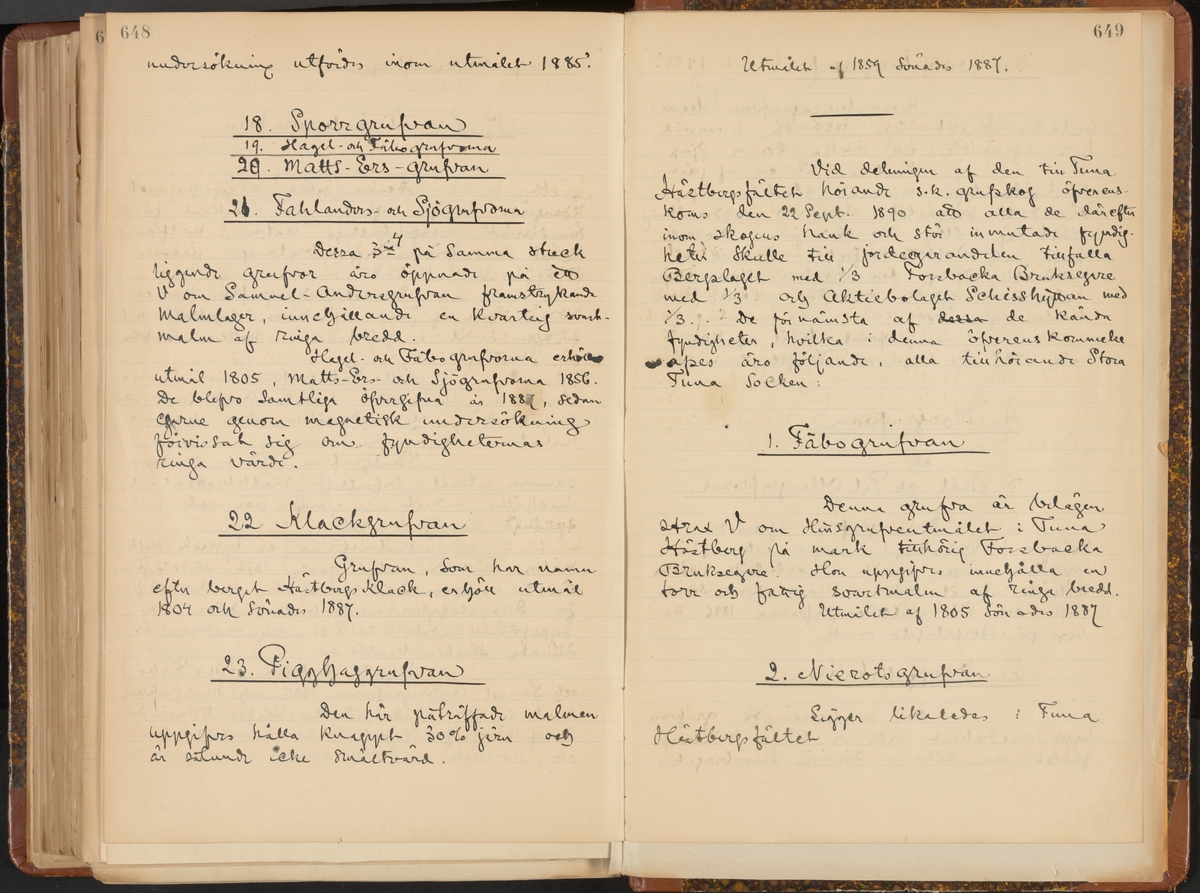 648
undersökning utfördes inom utmålet 1885.
18. Sporrgrufvan
19. Hagel- och Fäbogrufvorna
20. Matts-Ers-grufvan
21. Fahlanders- och Sjögrufvorna
Dessa 4 på samma streck
liggande grufvor äro öppnade på ett
V om Samuel-Andersgrufvan framstrykande
malmlager, innehållande en kvartsig svart-
malm af ringa bredd.
Hagel- och Fäbogrufvorna erhöllo
utmål 1805, Matts-Ers- och Sjögrufvorna 1856.
De blefvo samtliga öfvergifna år 1887, sedan
egarne genom magnetisk undersökning
förvissat sig om fyndigheternas
ringa värde.
22 Klackgrufvan
Grufvan, som har namn
efter berget Hästbergs Klack, erhöll utmål
1804 och sönades 1887.
23. Pigghaggrufvan
Den här påträffade malmen
uppgifves hålla knappt 30% järn och
är sålunda icke smältvärd.
649
Utmålet af 1859 sönades 1887.
Vid delningen af den till Tuna
Hästbergsfältet hörande s.k. grufskog öfverens-
koms den 22 Sept. 1890 att alla de därefter
inom skogens hank och stör inmutade fyndig-
heter skulle till jordegarandelen tillfalla
Bergslaget med 1/3 Forsbacka Bruksegare
med 1/3 och Aktiebolaget Schisshyttan med
1/3. De förnämsta af dessa de kända
fyndigheter, hvilka i denna öfverenskommelse
afses äro följande, alla tillhörande Stora
Tuna Socken:
1. Fäbogrufvan
Denna grufva är belägen
strax V om Husgrufveutmålet i Tuna
Hästberg på mark tillhörig Forsbacka
Bruksegare. Hon uppgifves innehålla en
torr och fattig svartmalm af ringa bredd.
Utmålet af 1805 sönades 1887
2. Nierotsgrufvan
Ligger likaledes i Tuna
Hästbergsfältet